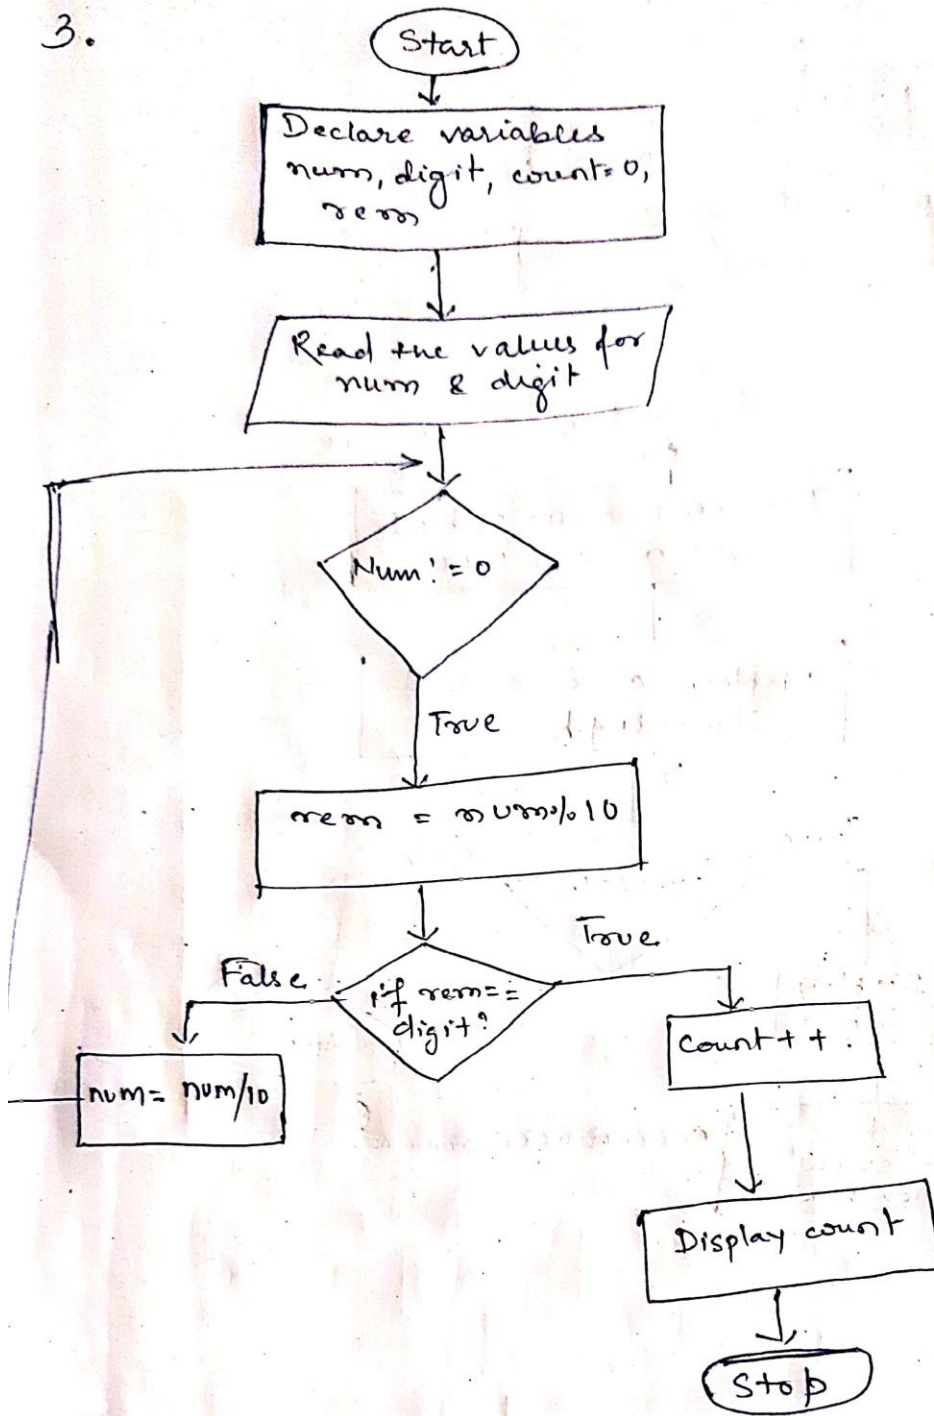 3.
Start
Declare variables
num, digit, count=0,
rem
Read the values for
num & digit
Num != 0
True
rem = num%10
True
False
if rem==
digit?
count++.
num= num/10
Display count
Stop